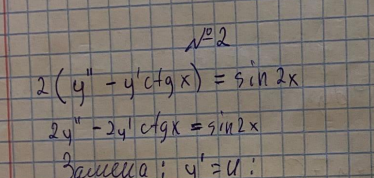 №2
2(y'' - y' ctg x) = sin 2x
2y'' - 2y' ctg x = sin 2x
Замена: y' = u: